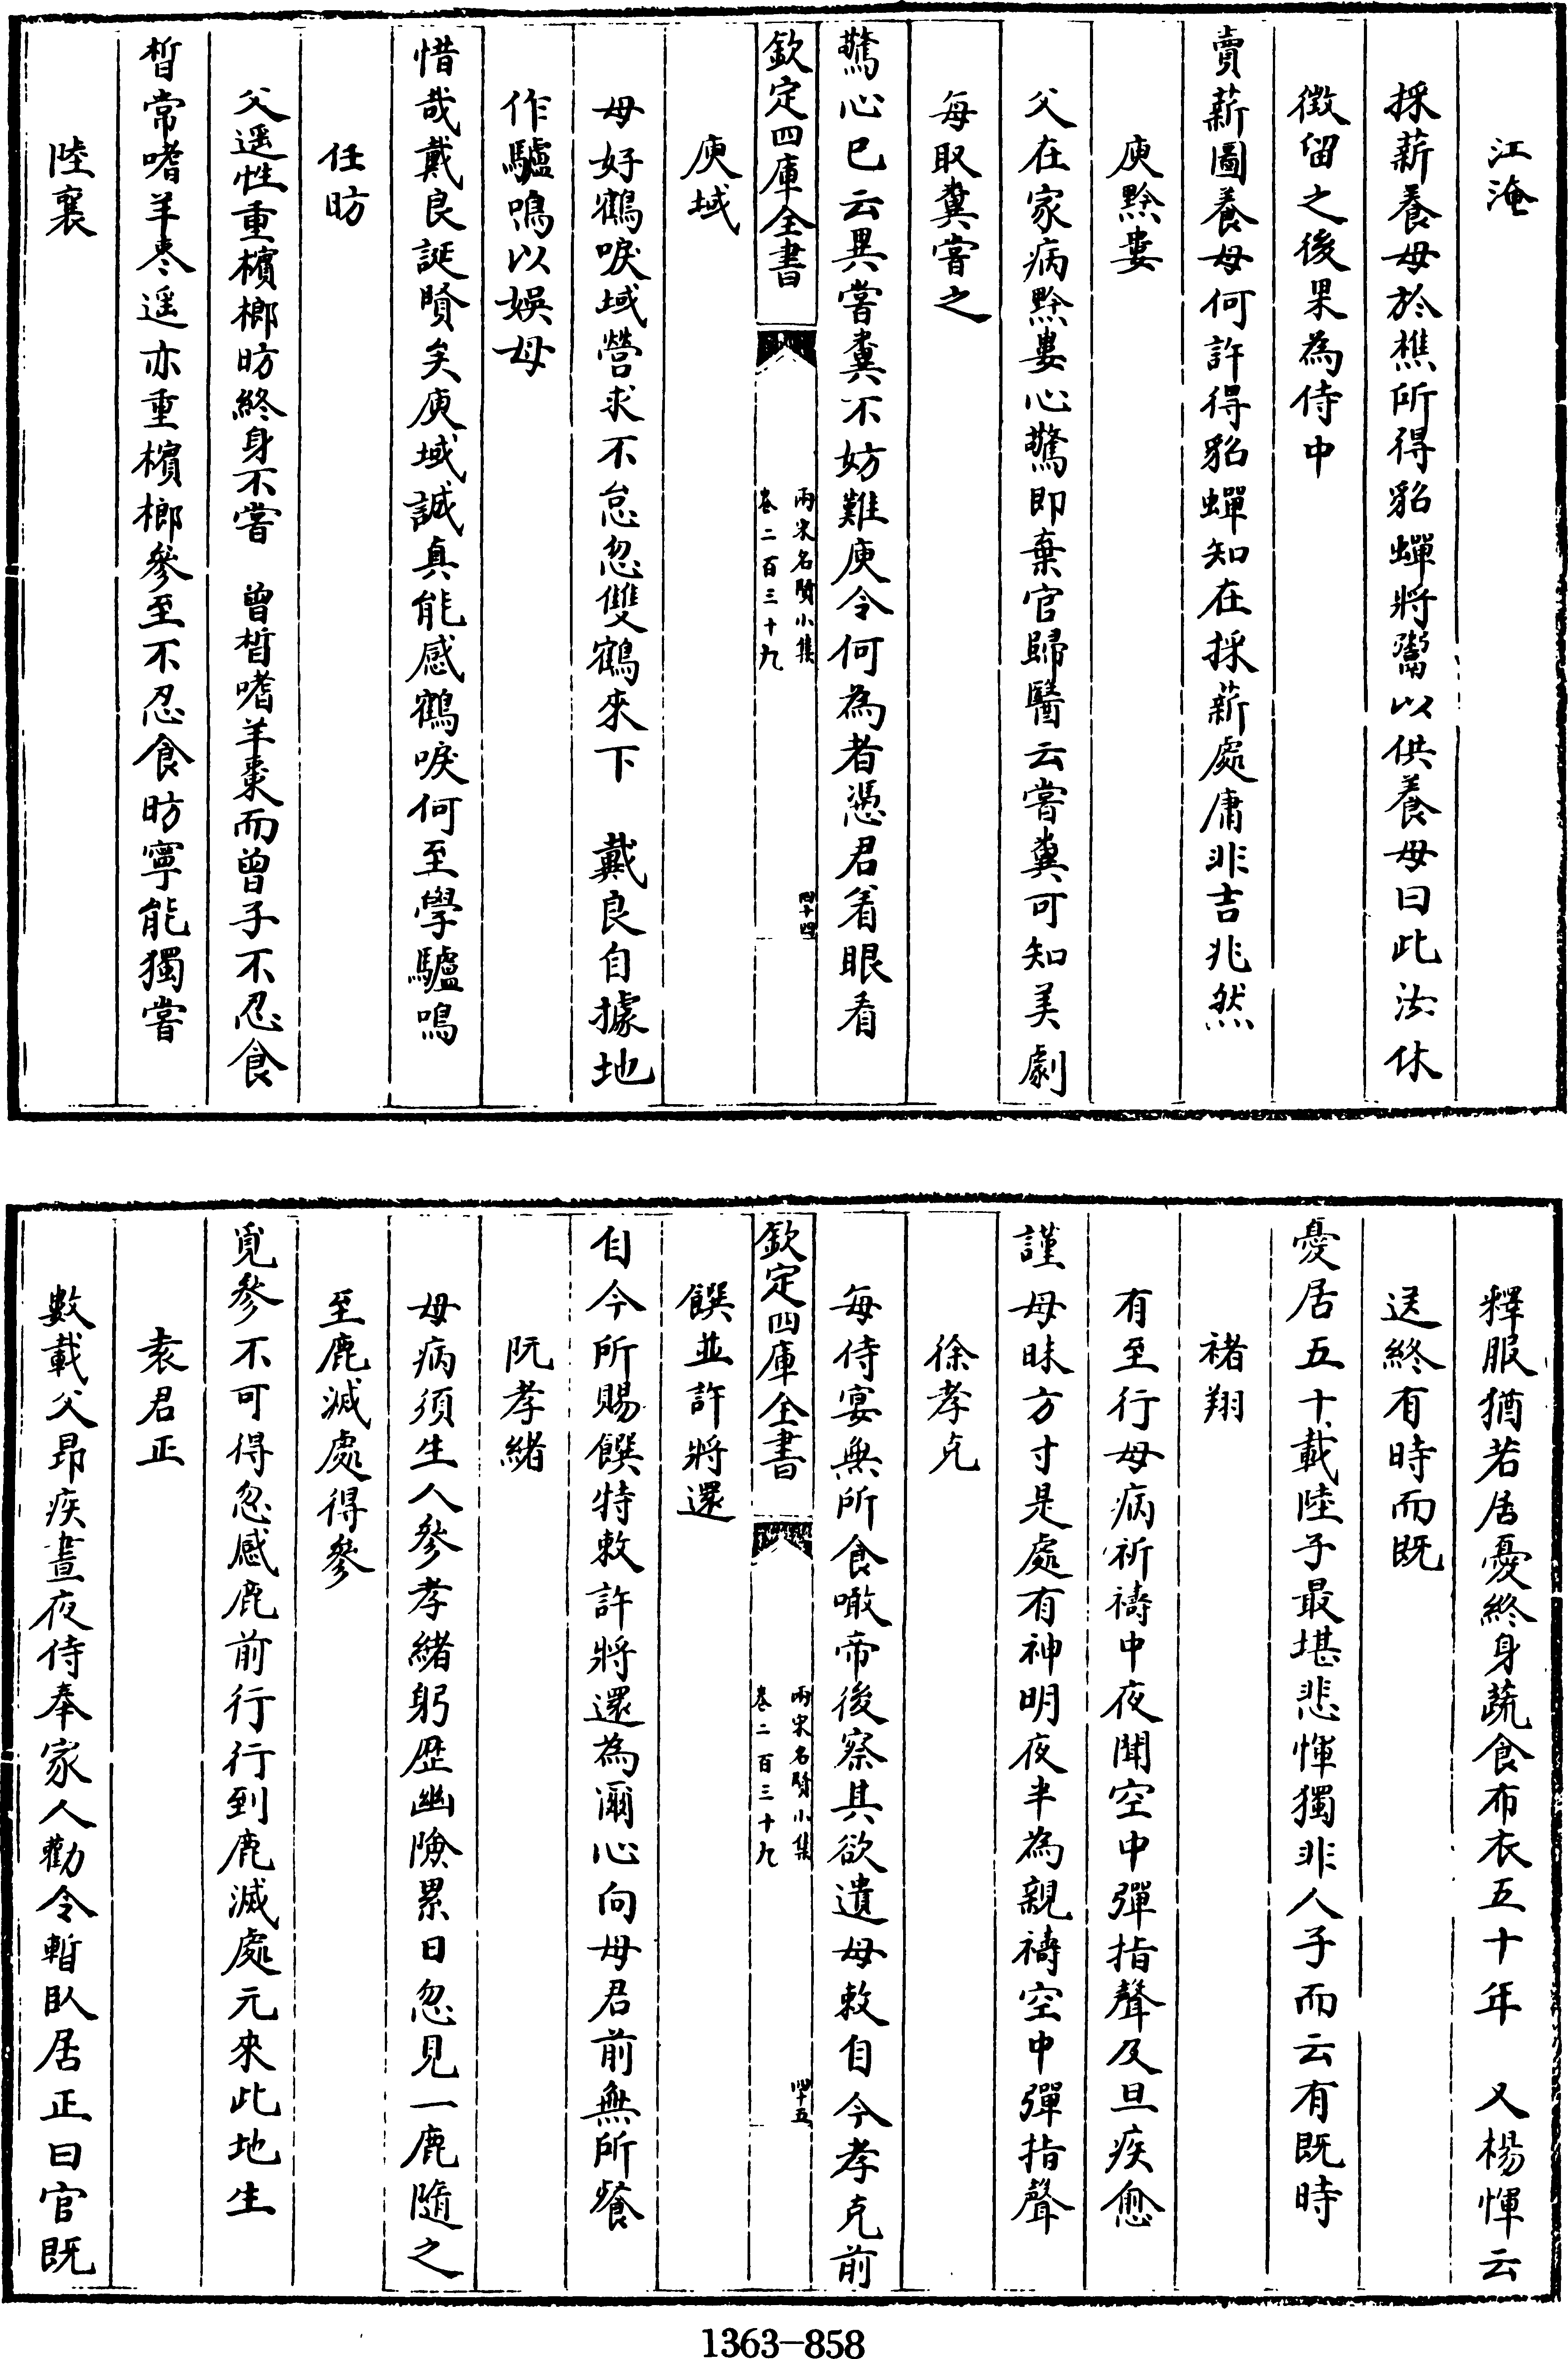 江淹
採薪養母於樵所得貂蟬將鬻以供養母曰此汝休
徴留之後果為侍中
賣薪圖養母何許得貂蟬知在採薪處庸非吉兆然
庾黔婁
父在家病黔婁心驚即棄官歸醫云嘗糞可知美劇
每取糞嘗之
驚心已云異嘗糞不妨難庾令何為者憑君着眼看
欽定四庫全書
兩宋名賢小集
卷二百三十九
四十四
庾域
母好鶴唳域營求不怠忽雙鶴來下 戴良自據地
作驢鳴以娛母
惜哉戴良誕賢矣庾域誠真能感鶴唳何至學驢鳴
任昉
父遥性重檳榔昉終身不嘗 曾晳嗜羊棗而曾子不忍食
晳常嗜羊棗遥亦重檳榔參至不忍食昉寧能獨嘗
陸襄
釋服猶若居憂終身蔬食布衣五十年 又楊惲云
送終有時而既
憂居五十載陸子最堪悲惲獨非人子而云有既時
褚翔
有至行母病祈禱中夜聞空中彈指聲及旦疾愈
謹母昧方寸是處有神明夜半為親禱空中彈指聲
徐孝克
每侍宴無所食噉帝後察其欲遺母敕自今孝克前
欽定四庫全書
兩宋名賢小集
卷二百三十九
四十五
饌並許將還
自今所賜饌特敕許將還為濔心向母君前無所飧
阮孝緒
母病須生人參孝緒躬歴幽險累日忽見一鹿隨之
至鹿滅處得參
覓參不可得忽感鹿前行行到鹿滅處元來此地生
袁君正
數載父昂疾晝夜侍奉家人勸令暫臥居正曰官既
1363-858